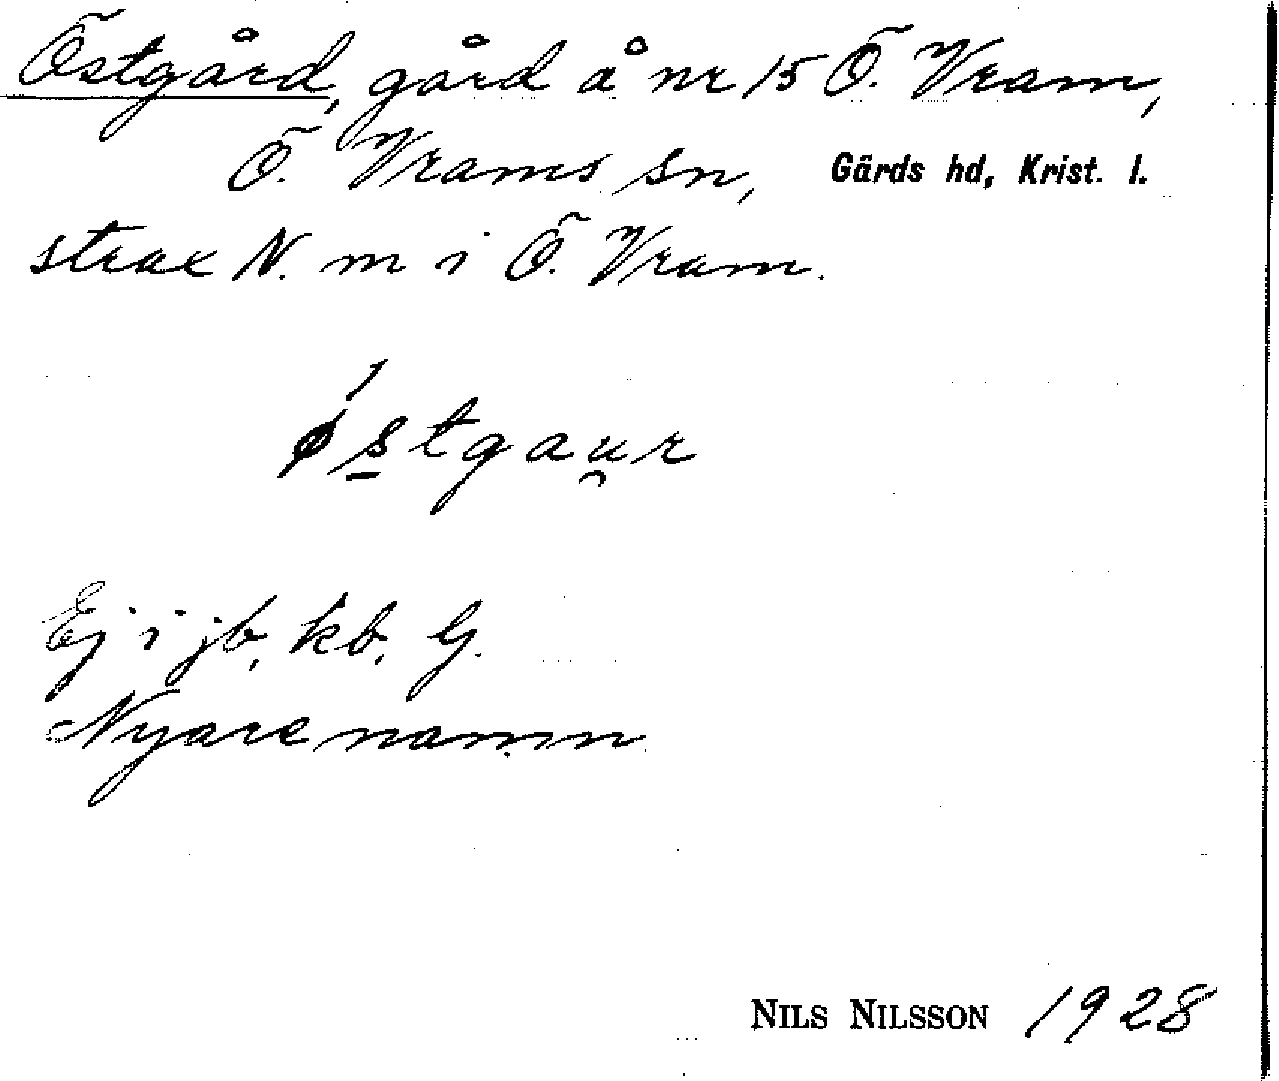 Östgård, gård å nr 15 Ö. Vram,
Ö. Vrams sn, Gärds hd, Krist. l.
strax N. m i Ö. Vram.
ǿs̲tgau̯r
Ej i jb, kb, G.
Nyare namn
NILS NILSSON 1928